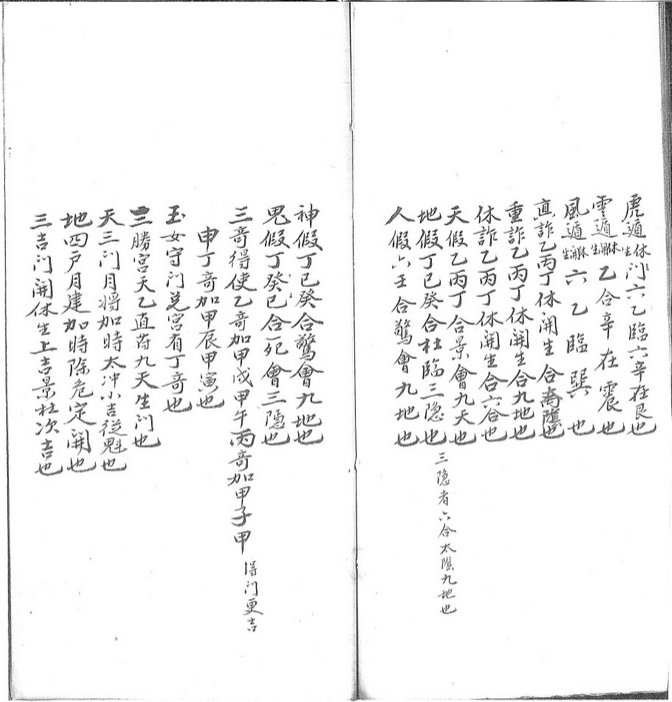 虎遁休生門六乙臨六辛在艮也
雲遁休開生乙合辛在震也
風遁休開生六乙臨巽也
真詐乙丙丁休開生合太陰也
重詐乙丙丁休開生合九地也
休詐乙丙丁休開生合六合也
天假乙丙丁合景會九天也
地假丁己癸合杜臨三隐也
三隐者六合太陰九地也
人假六壬合驚會九地也
神假丁己癸合驚會九地也
鬼假丁癸己合死會三隐也
三奇得使乙奇加甲戌甲午丙奇加甲子甲
得门更吉
申丁奇加甲辰甲寅也
玉女守门兑宫有丁奇也
三勝宫天乙直符九天生门也
天三门月将加時太冲小吉從魁也
地四户月建加時除危定開也
三吉门開休生上吉景杜次吉也